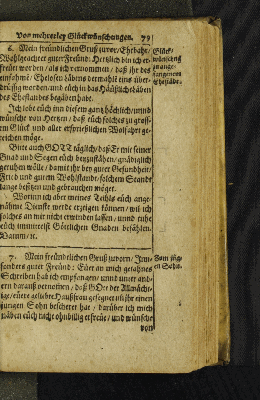 Von mehrerley Glückwünschungen. 79
6. Mein freundlichen Gruß zuvor/ Ehrbahr/
Wohlgeachter guter Freund: Hertzlich bin ich er-
freuet worden/ als ich vernommen/ daß ihr des
einsahme Eheloser lebens dermahls eins über-
drüssig worden/ und euch in das Häußliche leben
des Ehestandes begäben habt.
Glück-
wünschung
zu ange-
fangenem
Ehestande.
Ich lebe euch in diesem gantz höchlich/ und
wünsche von Hertzen/ daß euch solches zu gros-
sem Glück und aller ersprießlichen Wolfahrt ge-
reichen möge.
Bitte auch GOTT täglich/ daß Er mit seiner
Gnad und Segen euch beyzustähen/ gnädiglich
geruhen wölle/ damit ihr bey guter Gesundheit/
Fried und gutem Wohlstande/ solchen Standt
lange besitzen und gebrauchen möget.
Worinn ich aber meines Teihls euch ange-
nähme Dienste werde erzeigen können/ wil ich
solches an mir nicht erwinden lassen/ unnd tuhe
euch immittelst Göttlichen Gnaden befählen.
Datum/ ec.
7. Mein freundlichen Gruß zuvorn/ Inn-
sonders guter Freund: Euer an mich gethanes
Schreiben hab ich empfangen/ unnd unter and-
ern daraus vernommen/ daß GOtt der Allmächti-
ge/ euere geliebte Haußfrau gesegnet und ihr einen
jungen Sohn bescheret hat/ darüber ich mich
neben euch nicht ohnbillig erfreue/ und wünsche
von
Zum jün-
gen Sohn.